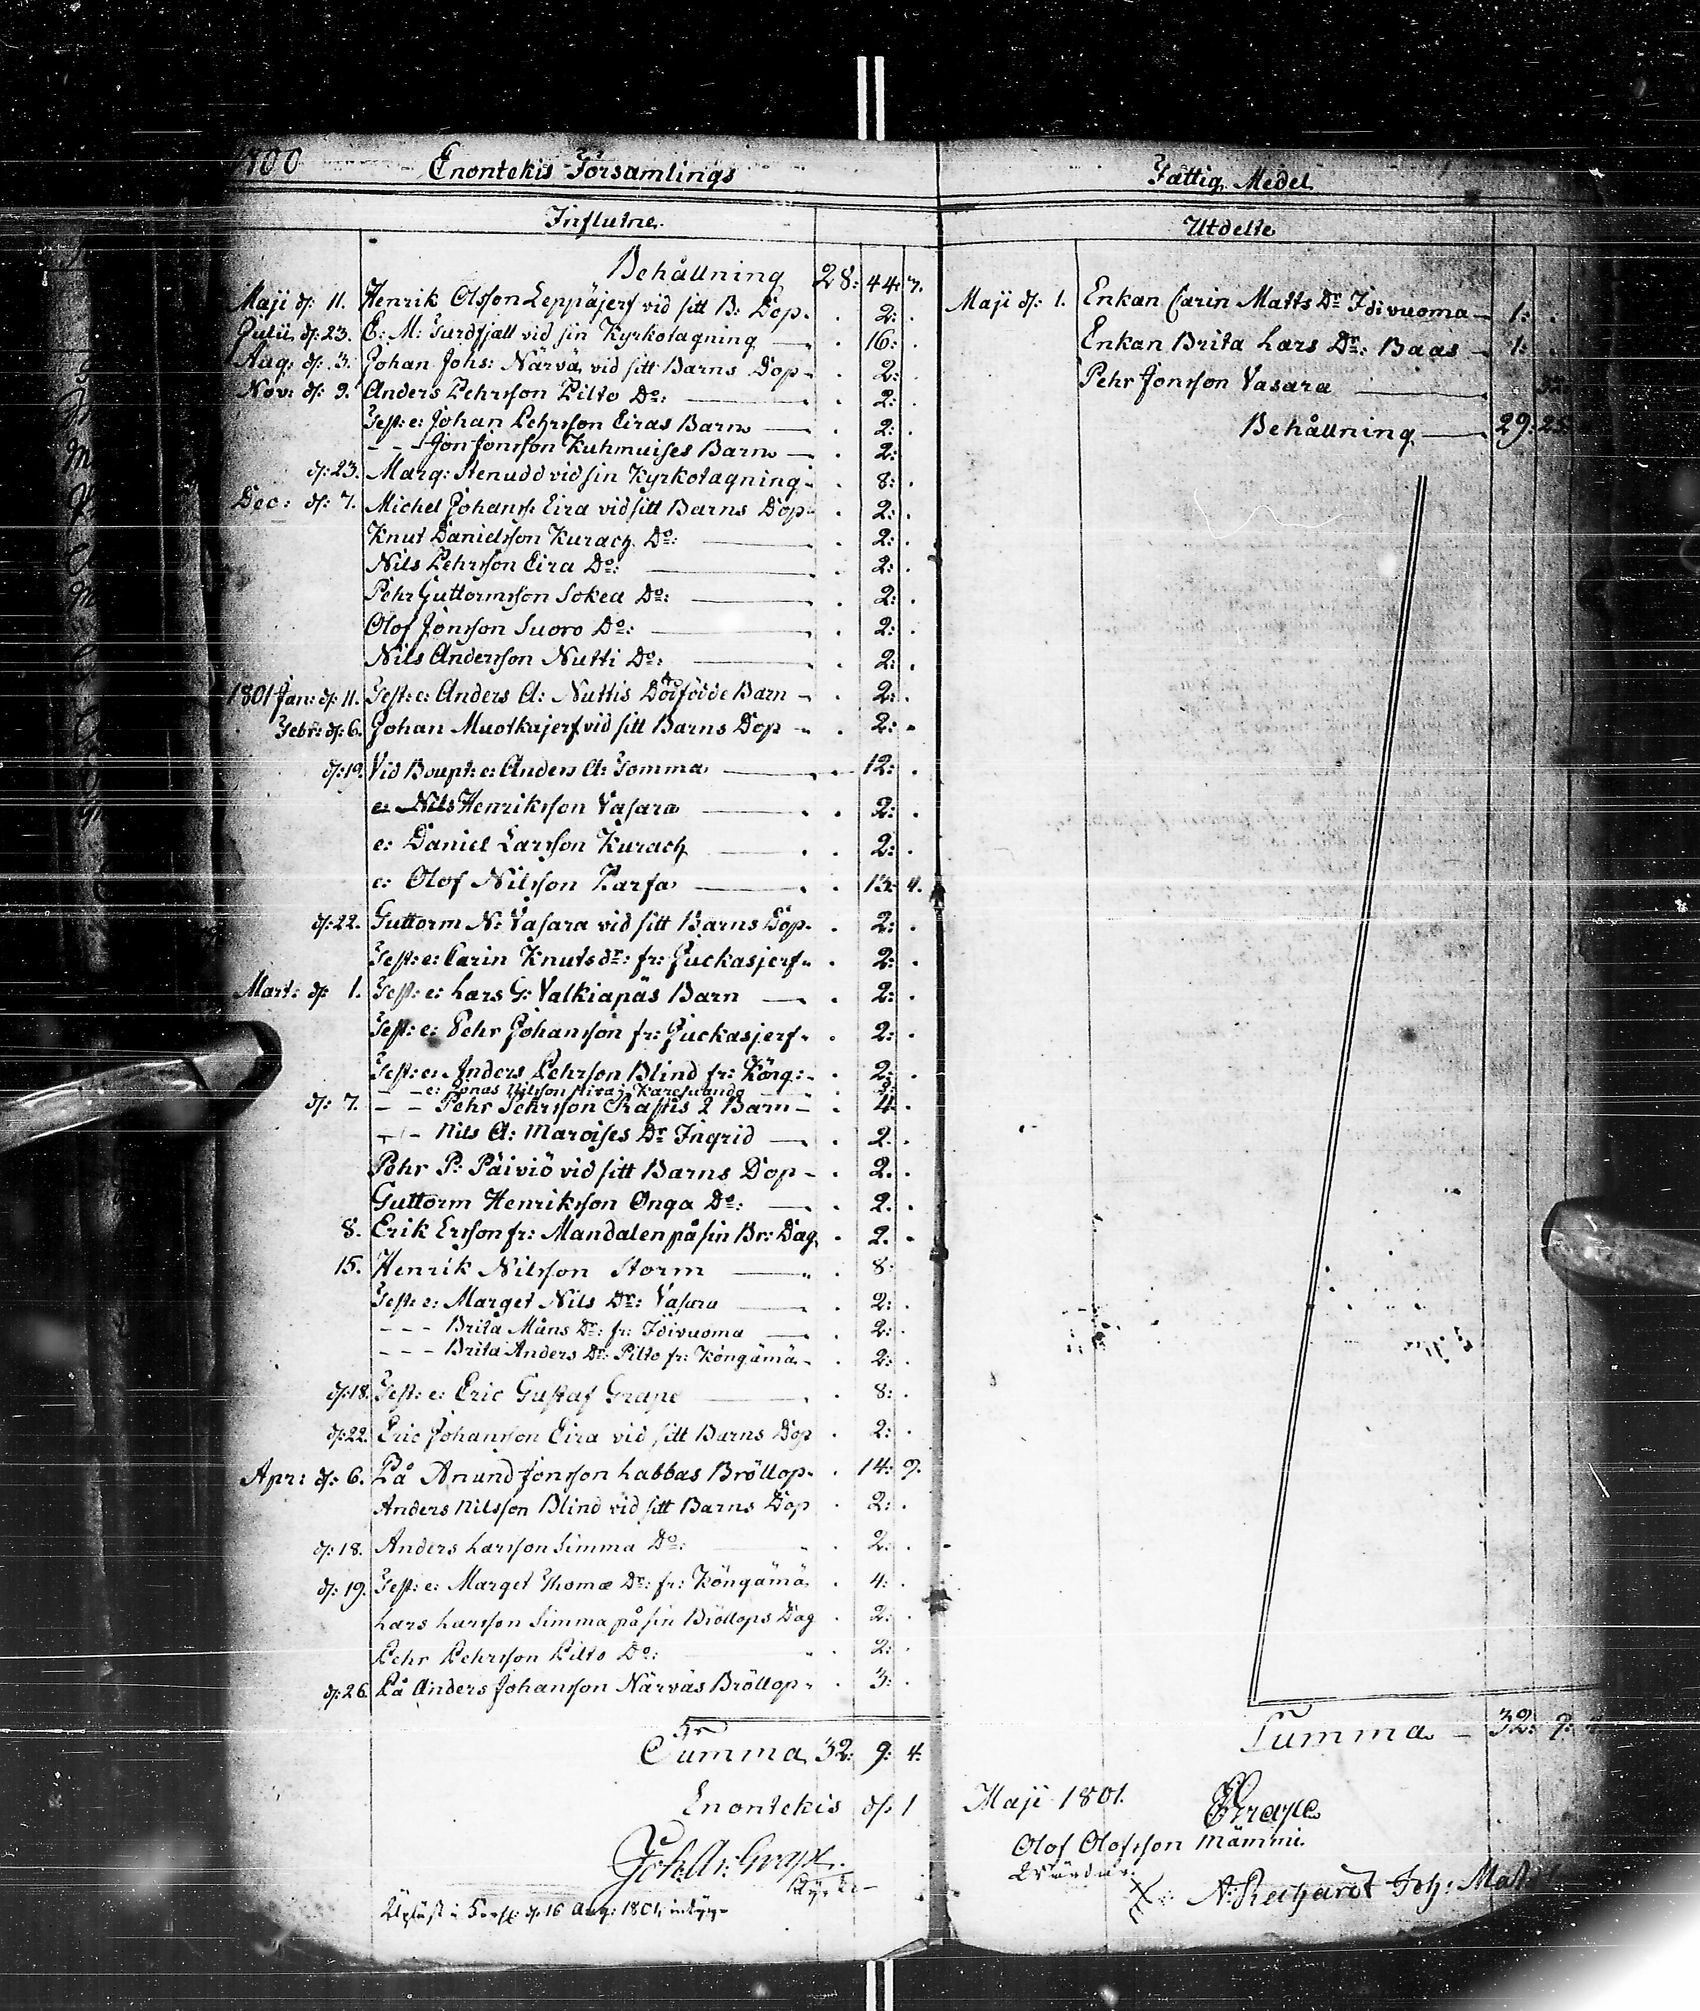 1800 Enontekis Församlings
Influtne.
Behållning 28: 44: 7.
Maji d: 11. Henrik Olsson Leppäjerf vid sitt B: Dop . 2: .
Julii d: 23. E: M: Turdfjäll vid sin Kyrkotagning . 16: .
Aug: d: 3. Johan Johs: Närvä vid sitt Barns Dop . 2: .
Nov: d: 9. Anders Pehrsson Pilto Do: . 2: .
Test: e: Johan Pehrsson Eiras Barn . 2: .
- - Jon Jonsson Kuhmuises Barn . 2: .
d: 23. Marg: Stenudd vid sin Kyrkotagning . 8: .
Dec: d: 7. Michel Johanss: Eira vid sitt Barns Dop . 2: .
Knut Danielsson Kurach Do: . 2: .
Nils Pehrsson Eira Do: . 2: .
Pehr Guttormsson Sokea Do: . 2: .
Olof Jonsson Suoro Do: . 2: .
Nils Andersson Nutti Do: . 2: .
1801 Jan: d: 11. Test: e: Anders A: Nuttis Dödfödde Barn . 2: .
Febr: d: 6. Johan Muotkajerf vid sitt Barns Dop . 2: .
d: 19. Vid Boupt: e: Anders A: Tomma . 12: .
e: Nils Henriksson Vasara . 2: .
e: Daniel Larsson Kurach . 2: .
e: Olof Nilsson Parfa . 13: 4.
d: 22. Guttorm N: Vasara vid sitt Barns Dop . 2: .
Test: e: Carin Knutsdr: fr: Juckasjerf . 2: .
Mart: d: 1. Test: e: Lars G: Valkiapäs Barn . 2: .
Test: e: Pehr Johansson fr: Juckasjerf . 2: .
Test: e: Anders Pehrsson Blind fr: Köng: . 2: .
- - e: Jonas Nilsson Karesuando
d: 7. - - Pehr Pehrsson Rastis 2 Barn . 4. .
- - Nils A: Maroises Dr Ingrid . 2. .
Pehr P: Päiviö vid sitt Barns Dop . 2. .
Guttorm Henriksson Onga Do: . 2. .
8. Erik Ersson fr: Mandalen på sin Br: Dag . 2. .
15. Henrik Nilsson Storm . 8:
Test: e: Marget Nils Dr: Vasara . 2: .
- - - Brita Måns Dr: fr: Idivuoma . 2: .
- - - Brita Anders Dr: Pilto fr: Köngämä . 2: .
d: 18. Test: e: Eric Gustaf Grape . 8: .
d: 22. Eric Johansson Eira vid sitt Barns Dop . 2: .
Apr: d: 6. På Anund Jonsson Labbas Bröllop . 14: 9.
Anders Nilsson Blind vid sitt Barns Dop . 2: .
d: 18. Anders Larsson Simma Do: . 2: .
d: 19. Test: e: Marget Thomæ Dr: fr: Köngämä . 4: .
Lars Larsson Simma på sin Bröllops Dag . 2: .
Pehr Pehrsson Pilto Do: . 2: .
d: 26. På Anders Johansson Närväs Bröllop . 3: .
Summa 32: 9: 4.
Enontekis d: 1
Joh: Grape
Upläst i d: 16 Aug: 1801
Fattig Medel
Utdelte
Maji d: 1. Enkan Carin Matts Dr Idivuoma 1: .
Enkan Brita Lars Dr: Baas 1: .
Pehr Jonsson Vasara
Behållning 29:
Summa 32: 9:
Maji 1801.
Grape
Olof Olofsson Mämmi